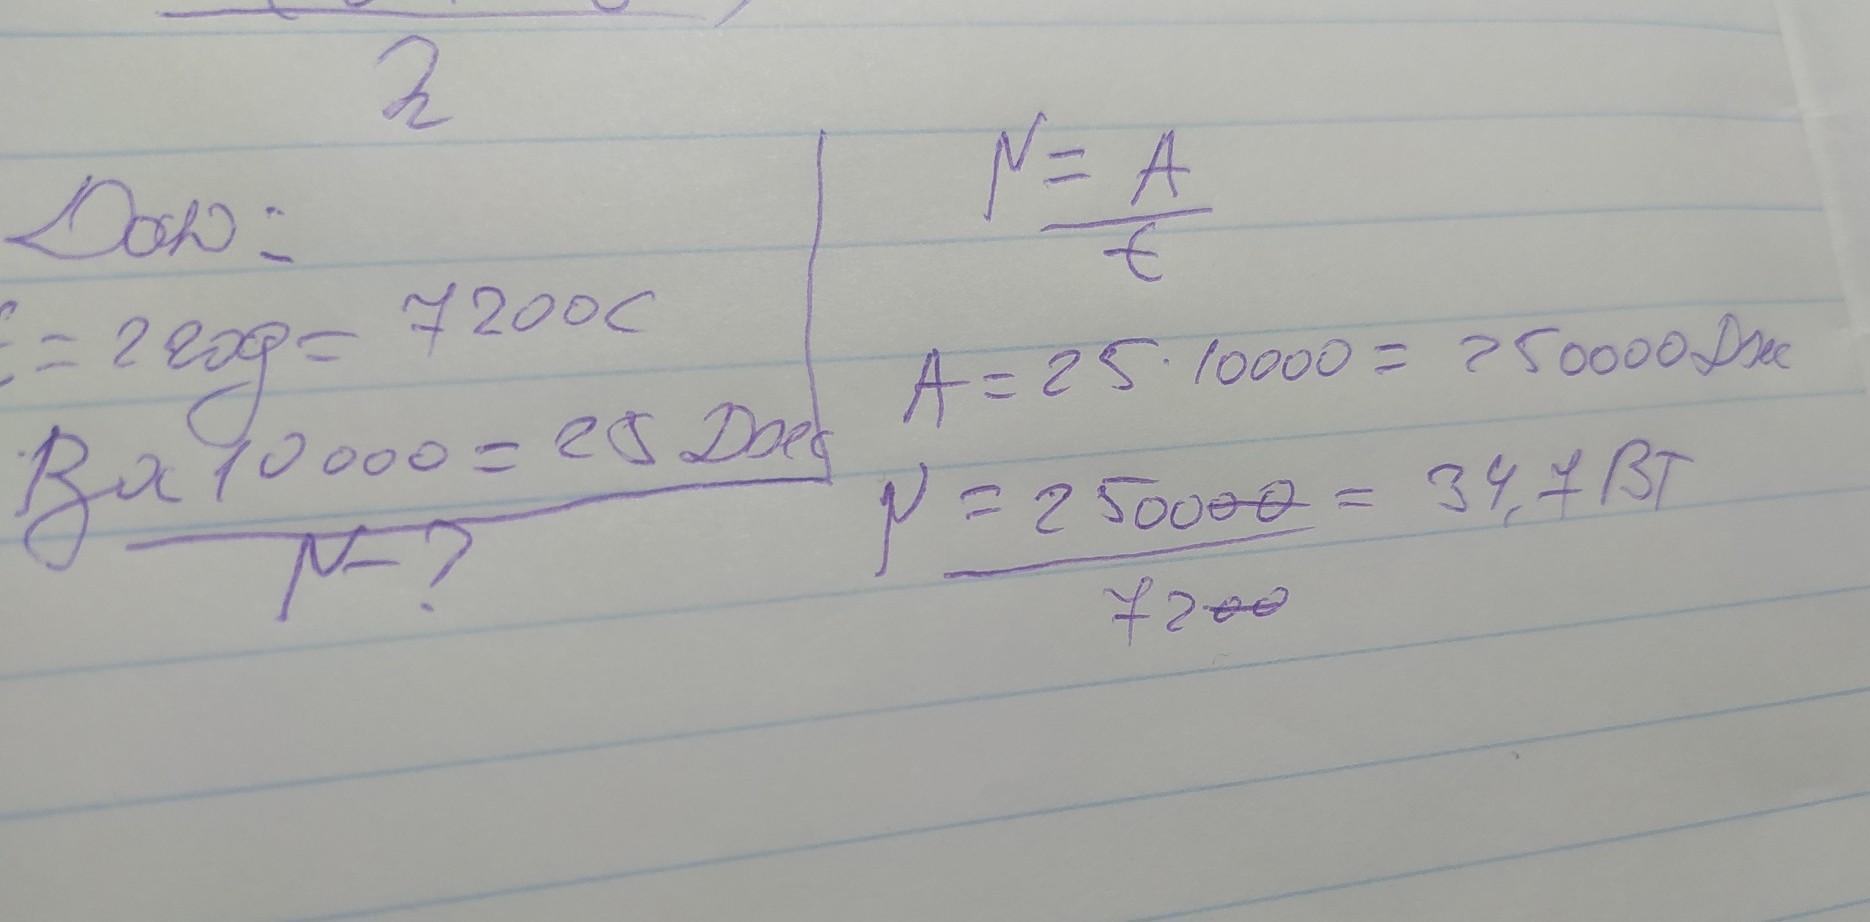 2
Дано:
t = 2 год = 7200 с
N = A
t
A = 25 · 10000 = 250000 Дж
10000 = 25 Дж
N = 250000 = 34,7 Вт
7200
N - ?